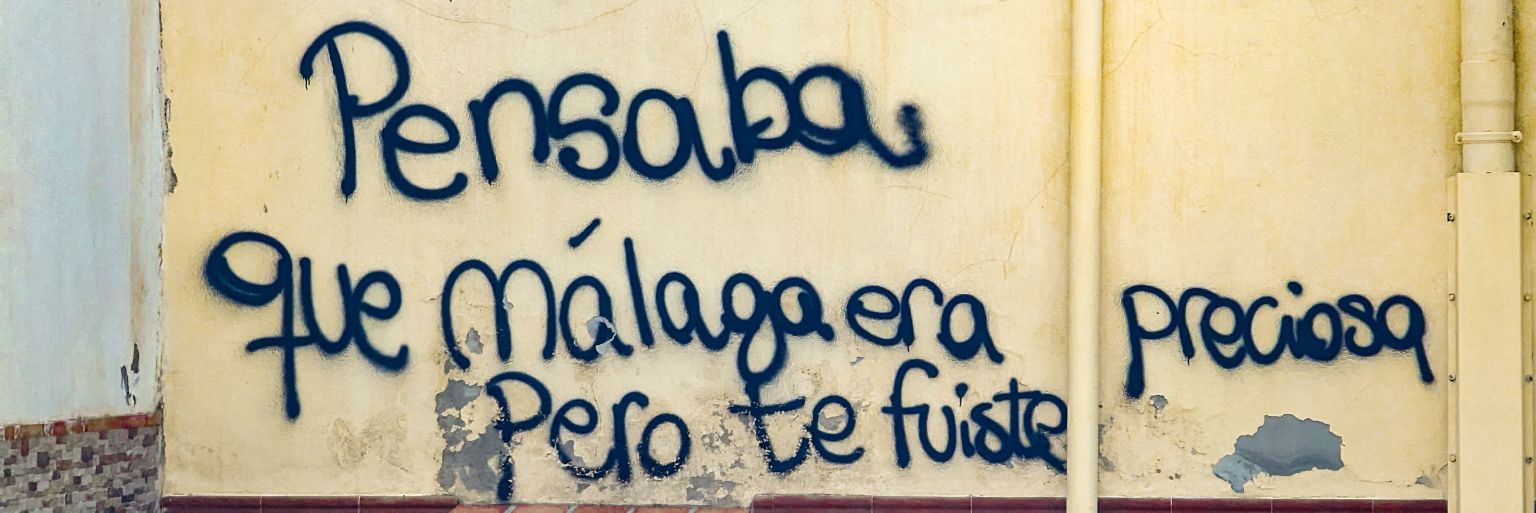 Pensaba
que Málaga era preciosa
Pero te fuiste